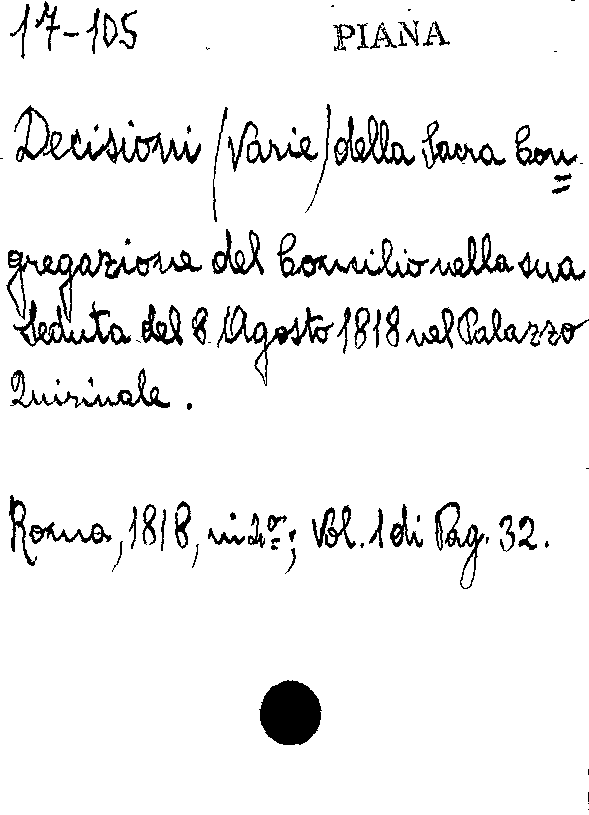 17-105 PIANA
Decisioni (Varie) della Sacra Con=
gregazione del Concilio nella sua
seduta del 8 Agosto 1818 nel Palazzo
Quirinale.
Roma, 1818, in 4º; Vol. 1 di Pag. 32.